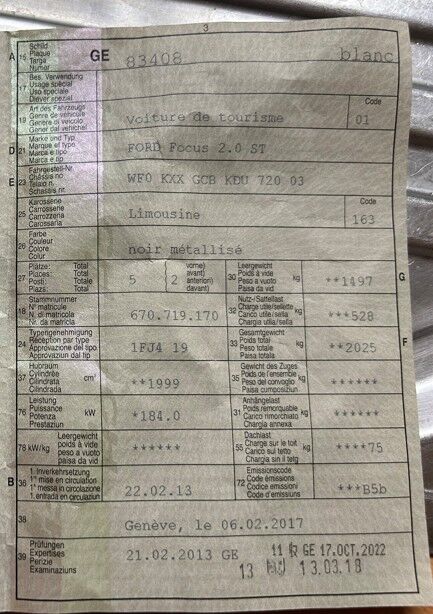 3
A 15 Schild Plaque Targa Numer GE 83408 blanc
17 Bes. Verwendung Usage spécial Uso speciale Diever spezial
19 Art des Fahrzeugs Genre de véhicule Genere di veicolo Gener dal vehichel Voiture de tourisme Code 01
D 21 Marke und Typ Marque et type Marca e tipo Marca e tip FORD Focus 2.0 ST
E 23 Fahrgestell-Nr. Châssis no Telaio n. Schassis nr. WF0 KXX GCB KDU 720 03
25 Karosserie Carrosserie Carrozzeria Carossaria Limousine Code 163
26 Farbe Couleur Colore Colur noir métallisé
27 Plätze: Total Places: Total Posti: Totale Plazs: Total 5 2 vorne) avant) anteriori) davant) 30 Leergewicht Poids à vide Peso a vuoto Paisa da vid kg **1497 G
18 Stammnummer N° matricule N. di matricola Nr. da matricla 670.719.170 32 Nutz-/Sattellast Charge utile/sellette Carico utile/sella Chargia utila/sella kg ***528
24 Typengenehmigung Réception par type Approvazione del tipo Approvaziun dal tip 1FJ4 19 33 Gesamtgewicht Poids total Peso totale Paisa totala kg **2025 F
37 Hubraum Cylindrée Cilindrata Cilindrada cm³ **1999 35 Gewicht des Zuges Poids de l'ensemble Peso del convoglio Paisa cumposiziun kg ******
76 Leistung Puissance Potenza Prestaziun kW *184.0 31 Anhängelast Poids remorquable Carico rimorchiato Chargia annexa kg ******
78 kW/kg Leergewicht poids à vide peso a vuoto paisa da vid ****** 55 Dachlast Charge sur le toit Carico sul tetto Chargia sin il tetg kg ****75
B 36 1. Inverkehrsetzung 1re mise en circulation 1a messa in circolazione 1. entrada en circulaziun 22.02.13 72 Emissionscode Code émissions Codice emissioni Code d'emissiuns ***B5b
38 Genève, le 06.02.2017
39 Prüfungen Expertises Perizie Examinaziuns 21.02.2013 GE 11 GE 17.OCT.2022
13 13.03.18